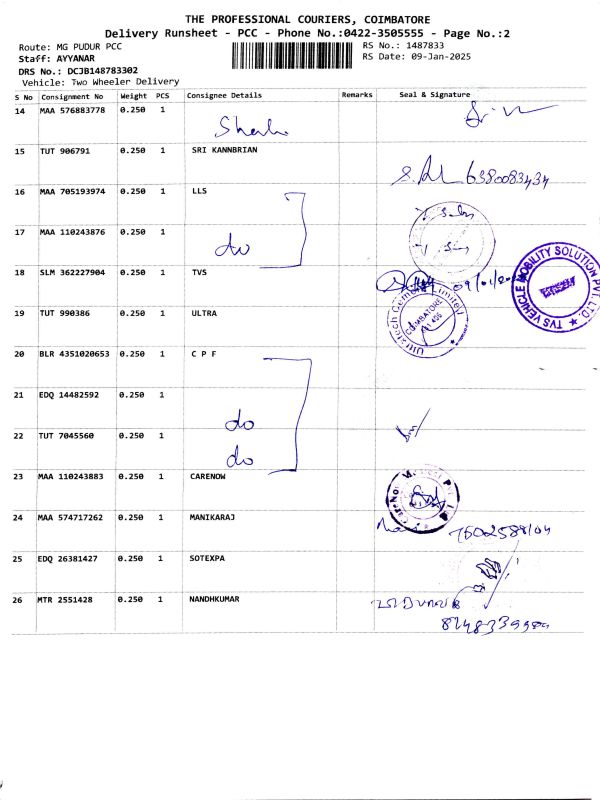 THE PROFESSIONAL COURIERS, COIMBATORE
Delivery Runsheet - PCC - Phone No.:0422-3505555 - Page No.:2
Route: MG PUDUR PCC
RS No.: 1487833
Staff: AYYANAR
RS Date: 09-Jan-2025
DRS No.: DCJB148783302
Vehicle: Two Wheeler Delivery
S No Consignment No Weight PCS Consignee Details Remarks Seal & Signature
14 MAA 576883778 0.250 1
15 TUT 906791 0.250 1 SRI KANNBRIAN
6380083434
16 MAA 705193974 0.250 1 LLS
17 MAA 110243876 0.250 1 do
18 SLM 362227904 0.250 1 TVS
TVS VEHICLE MOBILITY SOLUTION PVT. LTD
19 TUT 990386 0.250 1 ULTRA
Ultratech Cement Limited
COIMBATORE
20 BLR 4351020653 0.250 1 C P F
21 EDQ 14482592 0.250 1 do
22 TUT 7045560 0.250 1 do
23 MAA 110243883 0.250 1 CARENOW
24 MAA 574717262 0.250 1 MANIKARAJ
25 EDQ 26381427 0.250 1 SOTEXPA
26 MTR 2551428 0.250 1 NANDHKUMAR